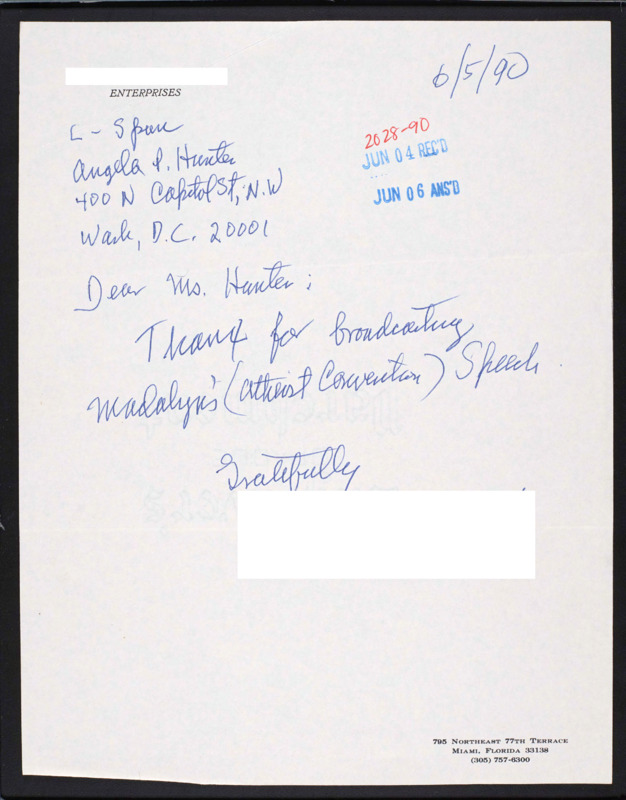 ENTERPRISES
6/5/90
C-Span
Angela P. Hunter
2028-90
JUN 04 REC'D
400 N Capitol St, N.W
JUN 06 ANS'D
Wash, D.C. 20001
Dear Ms. Hunter:
Thank for broadcasting
Madalyn's (Atheist Convention) Speech.
Gratefully
795 Northeast 77th Terrace
Miami, Florida 33138
(305) 757-6300